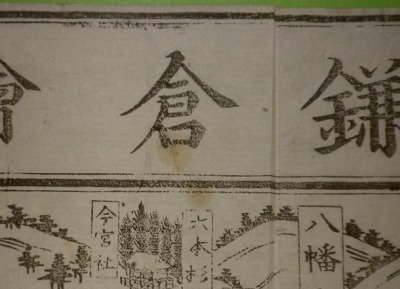 鎌倉繪
八幡
六本杉
今宮社